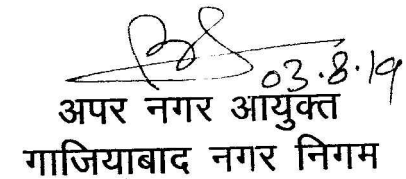 03.8.19
अपर नगर आयुक्त
गाजियाबाद नगर निगम